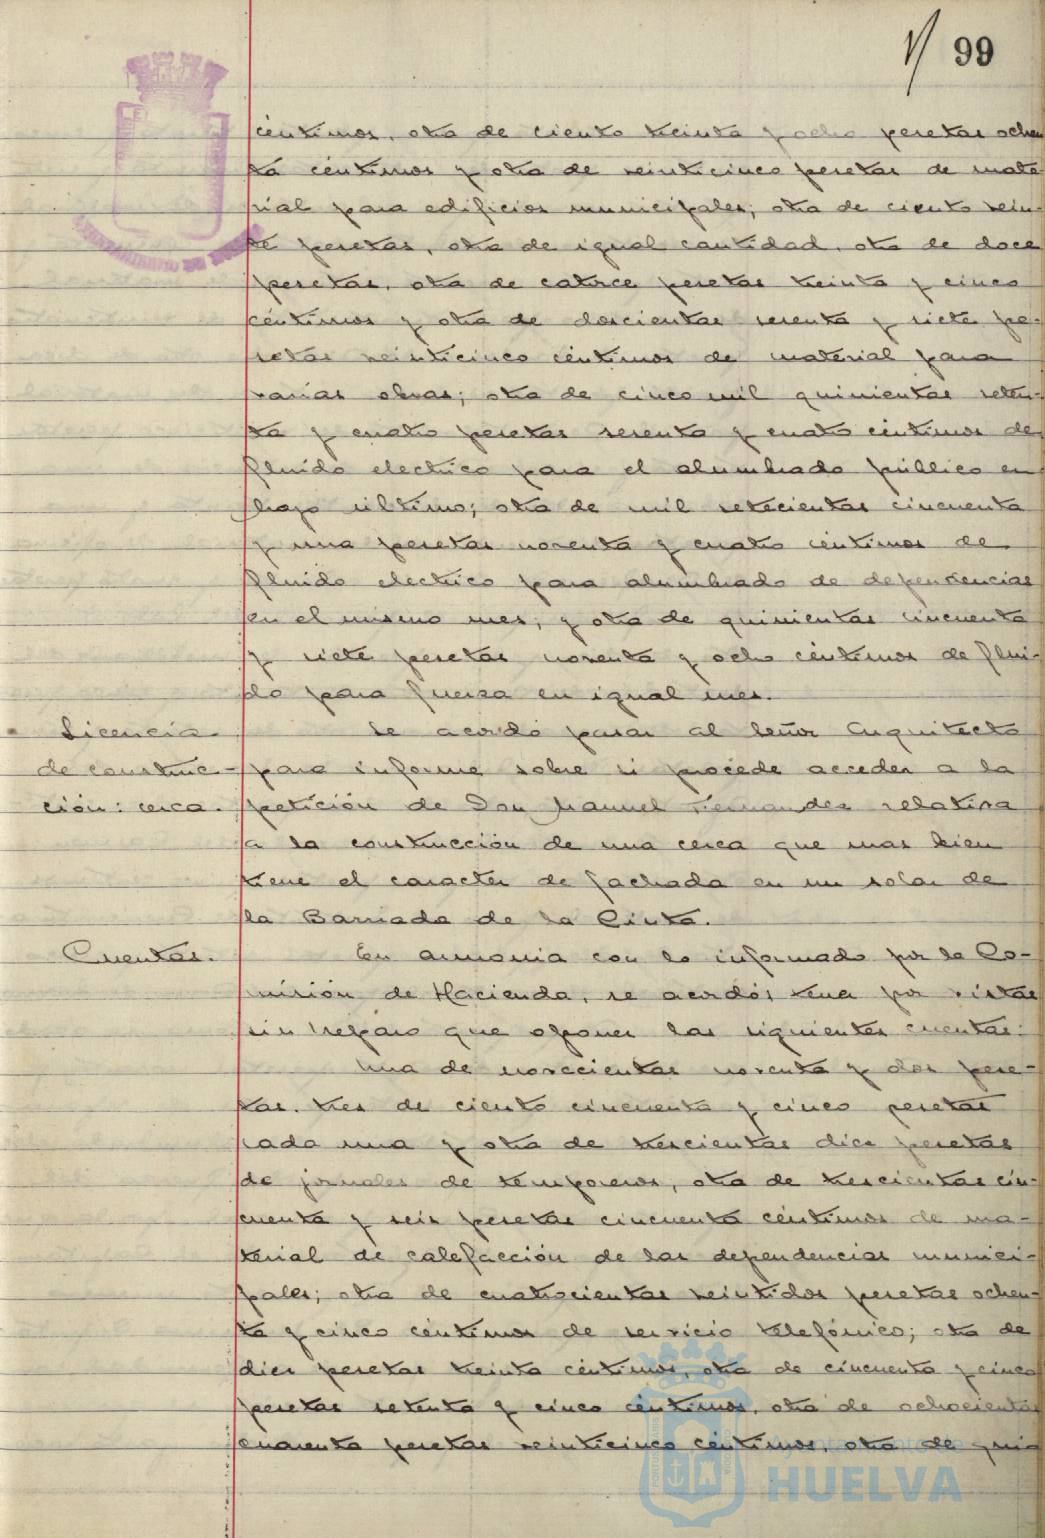 99
céntimos, otra de ciento treinta y ocho pesetas ochen
ta céntimos y otra de veinticinco pesetas de mate
rial para edificios municipales; otra de ciento vein-
te pesetas, otra de igual cantidad, otra de doce
pesetas, otra de catorce pesetas treinta y cinco
céntimos y otra de doscientas sesenta y siete pe-
setas veinticinco céntimos de material para
varias obras; otra de cinco mil quinientas seten-
ta y cuatro pesetas sesenta y cuatro céntimos de
fluido electrico para el alumbrado público en
último; otra de mil setecientas cincuenta
y una pesetas noventa y cuatro céntimos de
fluido electrico para alumbrado de dependencias
en el mismo mes; y otra de quinientas cincuenta
y siete pesetas noventa y ocho céntimos de flui-
do para fuerza en igual mes.
Licencia
de construc-
ción: cerca.
Se acordó pasar al Señor Arquitecto
para informe sobre si procede acceder a la
petición de Don Manuel Fernandez relativa
a la construcción de una cerca que mas bien
tiene el caracter de fachada en un solar de
la Barriada de la Cinta.
Cuentas.
En armonia con lo informado por la Co-
misión de Hacienda, se acordó; tener por vistas
sin reparo que oponer las siguientes cuentas:
Una de novecientas noventa y dos pese-
tas, tres de ciento cincuenta y cinco pesetas
cada una y otra de trescientas diez pesetas
de jornales de temporeros, otra de trescientas cin-
cuenta y seis pesetas cincuenta céntimos de ma-
terial de calefacción de las dependencias munici-
pales; otra de cuatrocientas veintidos pesetas ochen-
ta y cinco céntimos de servicio telefónico; otra de
diez pesetas treinta céntimos, otra de cincuenta y cinco
pesetas setenta y cinco céntimos, otra de ochocientas
cuarenta pesetas veinticinco céntimos, otra de qui
HUELVA